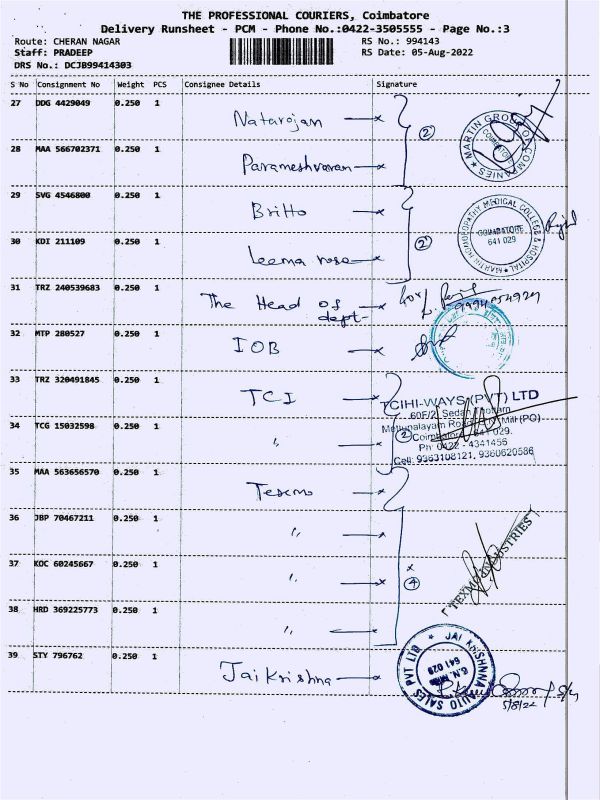 THE PROFESSIONAL COURIERS, Coimbatore
Delivery Runsheet - PCM - Phone No.:0422-3505555 - Page No.:3
Route: CHERAN NAGAR
RS No.: 994143
Staff: PRADEEP
RS Date: 05-Aug-2022
DRS No.: DCJB99414303
S No Consignment No Weight PCS Consignee Details Signature
27 DDG 4429049 0.250 1 Natarajan
28 MAA 566702371 0.250 1 Parameshvaran
2
MARTIN GROUP OF COMPANIES
COIMBATORE
29 SVG 4546800 0.250 1 Britto
30 KDI 211109 0.250 1 Leema rose
2
MARTIN HOMOEOPATHY MEDICAL COLLEGE & HOSPITAL
COIMBATORE
641 029
31 TRZ 240539683 0.250 1 The Head of
dept-
32 MTP 280527 0.250 1 IOB
33 TRZ 320491845 0.250 1 TCI
34 TCG 15032598 0.250 1 "
2
TCIHI-WAYS (PVT) LTD
60F/2, Sedan
Mettupalayam Road, Mill (PO)
Coimbatore - 641 029.
Ph: 0422 - 4341456
Cell: 9363108121, 9360620586
35 MAA 563656570 0.250 1 Texmo
36 JBP 70467211 0.250 1 "
37 KOC 60245667 0.250 1 "
38 HRD 369225773 0.250 1 "
4
TEXMO INDUSTRIES
39 STY 796762 0.250 1 Jai Krishna
JAI KRISHNNA AUTO SALES PVT LTD
641 029
5/8/22